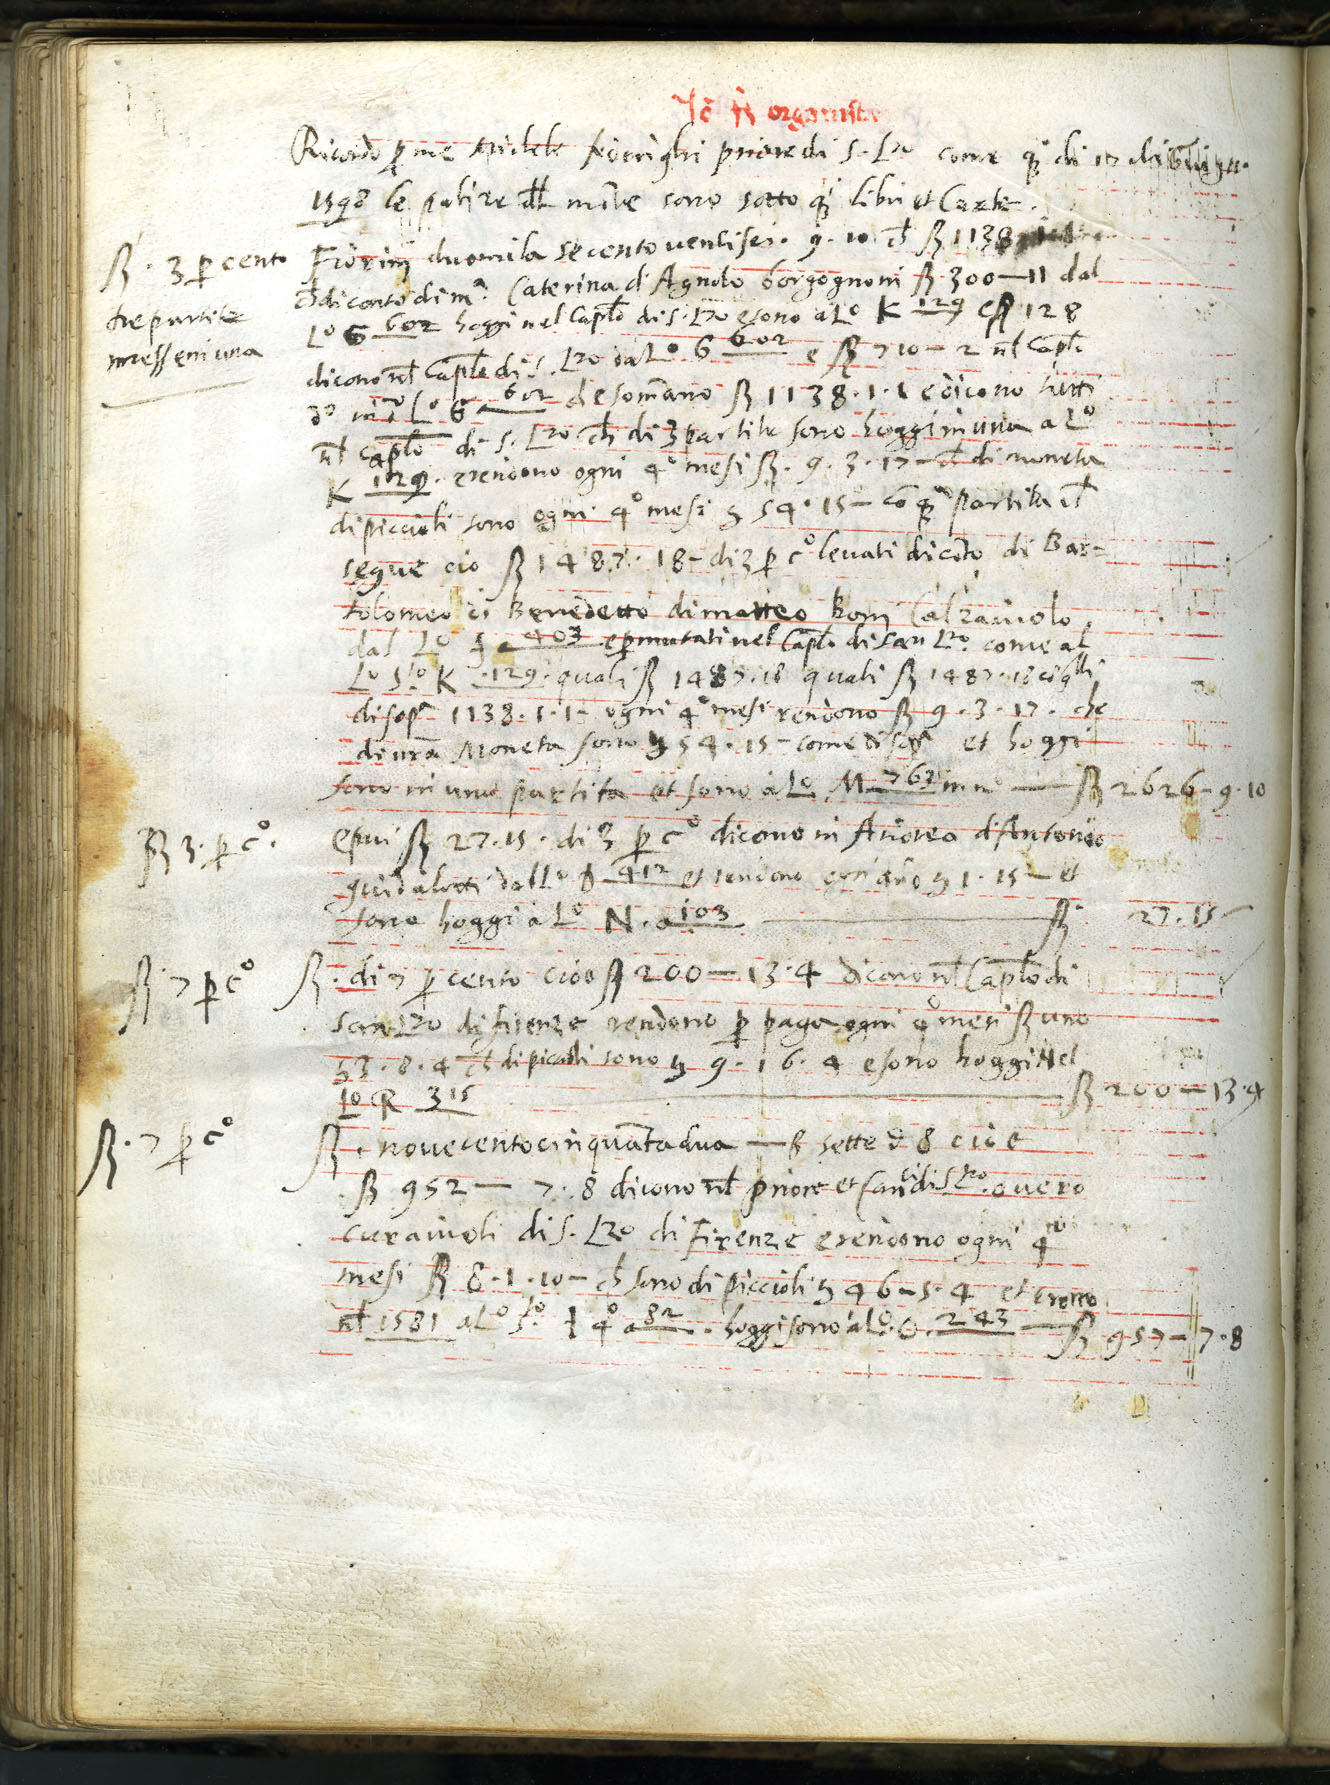 organista
Ricordo p me Michele federighi priore di S. Lzo come qº di 17 di
1590 le partite sono sotto qi libri et Carte.
ẞ. 3 p cento
tre partite
messe in una
Fiorini duomila secento ventisei. 9. 10 ẞ 1138
di conto di mª Caterina d Agnolo borgognoni ẞ 300—11 dal
Lº G 602 hoggi nel Caplo di S. Lzo e sono a Lº K 129 e ẞ 128
dicono nel Caplo di S. Lzo dal Lº G 602 e ẞ 710—2 nel Caplo
dº in dº Lº G 602 che somano ẞ 1138.1.1 e dicono tutti
nel caplo di S. Lzo ch di 3 partite sono hoggi in una a Lº
K 129. e rendono ogni 4º mesi ẞ. 9. 3. 17— di moneta
di piccioli sono ogni 4º mesi 54. 15— co qª partita
segue cio ẞ 1487. 18— di 3 p cº levati di coto di Bar-
tolomeo di Benedetto di matteo boni Calzaiuolo
dal Lº 403 e permutati nel Caplo di san Lzo come al
Lº Sº K .129. quali ẞ 1487.18 quali ẞ 1487.18
di sopª 1138.1.1— ogni 4º mesi rendono ẞ 9.3.17. che
di nrã Moneta sono 54.15— come di sopª et hoggi
sono in una partita et sono a Lº M 762 — ẞ 2626—9.10
ẞ 3. p cº.
e piu ẞ 27.15. di 3 p cº dicono in Andrea d'Antonio
guidalotti dal Lº D 412 et rendono 1.15— et
sono hoggi a Lº N. a 103 — ẞ. 27.15—
ẞ 7 p cº
ẞ. di 7 p cento cioe ẞ 200—13.4 dicono nel Caplo di
san Lzo di firenze rendono p paga ogni 4º mesi ẞ uno
3.8.4 ch di piccioli sono 9.16.4 e sono hoggi Nel
Lº R 315 — ẞ 200—13.4
ẞ. 7 p cº
ẞ. novecentocinquanta dua — sette d 8 cioe
. ẞ 952— 7.8 dicono nel priore et Canci di S Lzo. overo
curaiuoli di S. Lzo di Firenze e rendono ogni 4º
mesi ẞ 8.1.10— ch sono di piccioli 46—5.4 et erono
nel 1581 a Lº Sº. 4º a 82. hoggi sono a Lº. O. 243 — ẞ 957—7.8